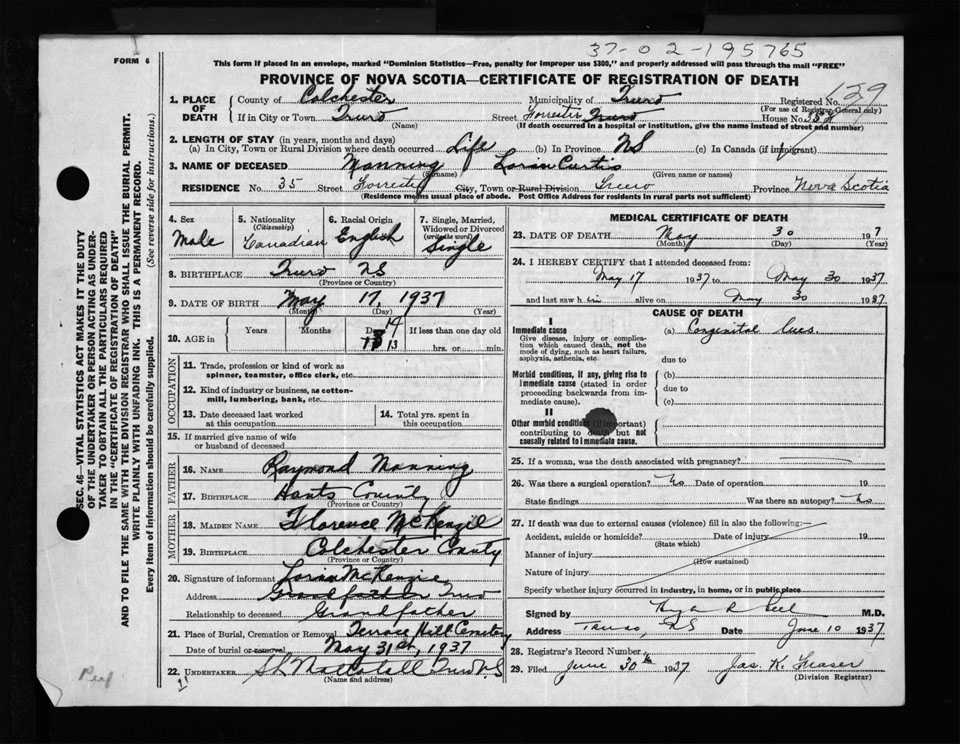 37-02-195765
FORM 6
This form if placed in an envelope, marked "Dominion Statistics—Free, penalty for improper use $300," and properly addressed will pass through the mail "FREE"
PROVINCE OF NOVA SCOTIA—CERTIFICATE OF REGISTRATION OF DEATH
129
1. PLACE OF DEATH
County of Colchester Municipality of Truro Registered No.
(For use of Registrar General only)
If in City or Town Truro Street Forrester Truro House No.
(Name) (If death occurred in a hospital or institution, give the name instead of street and number)
2. LENGTH OF STAY (in years, months and days)
(a) In City, Town or Rural Division where death occurred Life (b) In Province NS (c) In Canada (if immigrant)
3. NAME OF DECEASED Manning Loran Curtis
(Surname) (Given name or names)
RESIDENCE No. 35 Street Forrester City, Town or Rural Division Truro Province Nova Scotia
(Residence means usual place of abode. Post Office Address for residents in rural parts not sufficient)
4. Sex 5. Nationality (Citizenship) 6. Racial Origin 7. Single, Married, Widowed or Divorced (write the word)
Male Canadian English Single
8. BIRTHPLACE Truro N.S
(Province or Country)
9. DATE OF BIRTH May 17, 1937
(Month) (Day) (Year)
10. AGE in Years Months Days If less than one day old
14
13
hrs. or min.
OCCUPATION
11. Trade, profession or kind of work as spinner, teamster, office clerk, etc.
12. Kind of industry or business, as cotton-mill, lumbering, bank, etc.
13. Date deceased last worked at this occupation
14. Total yrs. spent in this occupation
15. If married give name of wife or husband of deceased
FATHER
16. NAME Raymond Manning
17. BIRTHPLACE Hants County
(Province or Country)
MOTHER
18. MAIDEN NAME Florence McKenzie
19. BIRTHPLACE Colchester County
(Province or Country)
20. Signature of informant Loran McKenzie
Address Grandfather Truro
Relationship to deceased Grandfather
21. Place of Burial, Cremation or Removal Terrace Hill Cemetery
Date of burial or removal May 31st, 1937
22. UNDERTAKER Truro N.S
(Name and address)
MEDICAL CERTIFICATE OF DEATH
23. DATE OF DEATH May 30 1937
(Month) (Day) (Year)
24. I HEREBY CERTIFY that I attended deceased from:
May 17 1937 to May 30 1937
and last saw h im alive on May 30 1937
CAUSE OF DEATH
I
Immediate cause (a) Congenital lues.
Give disease, injury or complication which caused death, not the mode of dying, such as heart failure, asphyxia, asthenia, etc.
due to
Morbid conditions, if any, giving rise to immediate cause (stated in order proceeding backwards from immediate cause).
(b)
due to
(c)
II
Other morbid conditions (if important) contributing to death but not causally related to immediate cause.
25. If a woman, was the death associated with pregnancy?
26. Was there a surgical operation? No Date of operation 19
State findings Was there an autopsy? No
27. If death was due to external causes (violence) fill in also the following:—
Accident, suicide or homicide? Date of injury 19
(State which)
Manner of injury
(How sustained)
Nature of injury
Specify whether injury occurred in industry, in home, or in public place
Signed by M.D.
Address Truro, NS Date June 10 1937
28. Registrar's Record Number
29. Filed June 30th 1937 Jas. K. Fraser
(Division Registrar)
SEC. 46—VITAL STATISTICS ACT MAKES IT THE DUTY
OF THE UNDERTAKER OR PERSON ACTING AS UNDER-
TAKER TO OBTAIN ALL THE PARTICULARS REQUIRED
IN THE "CERTIFICATE OF REGISTRATION OF DEATH"
AND TO FILE THE SAME WITH THE DIVISION REGISTRAR WHO SHALL ISSUE THE BURIAL PERMIT.
WRITE PLAINLY WITH UNFADING INK. THIS IS A PERMANENT RECORD.
Every item of information should be carefully supplied. (See reverse side for instructions.)